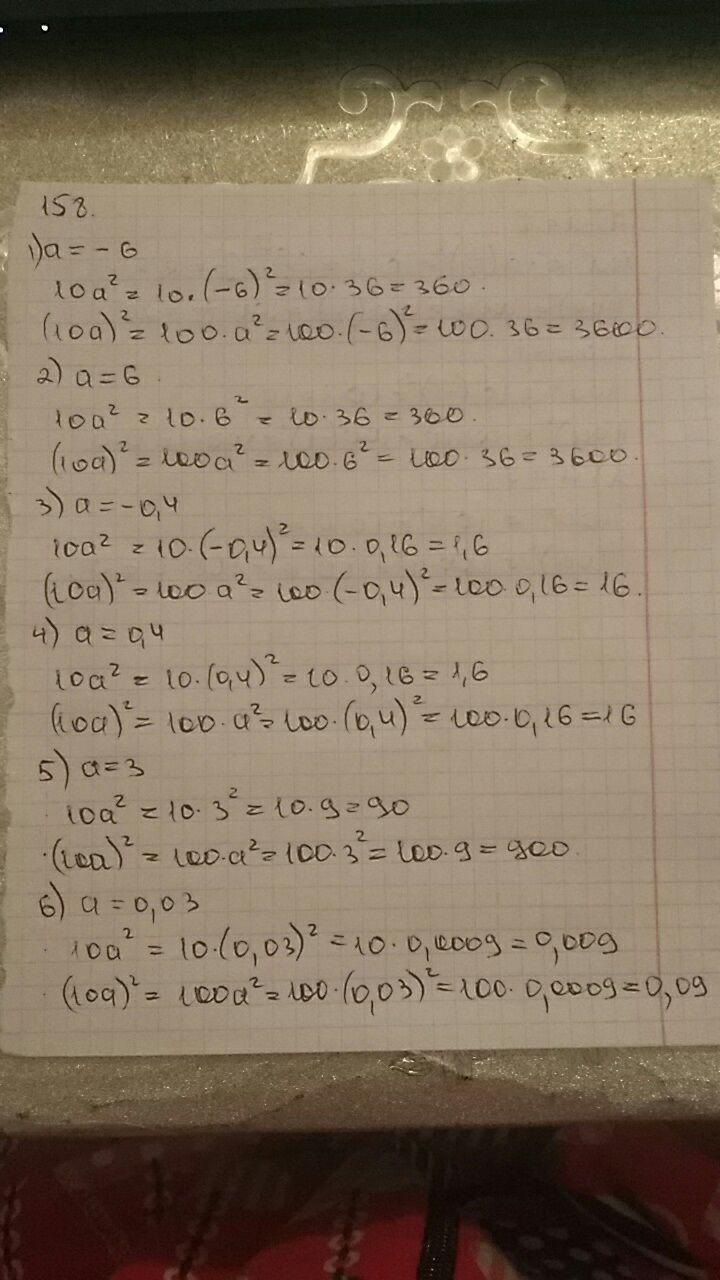 158.
1) a = - 6
10a² = 10. (-6)² = 10 · 36 = 360.
(10a)² = 100 · a² = 100 · (-6)² = 100. 36 = 3600.
2) a = 6
10a² = 10 · 6² = 10 · 36 = 360.
(10a)² = 100a² = 100 · 6² = 100 · 36 = 3600.
3) a = -0,4
10a² = 10 · (-0,4)² = 10 · 0,16 = 1,6
(10a)² = 100 a² = 100 · (-0,4)² = 100 · 0,16 = 16.
4) a = 0,4
10a² = 10 · (0,4)² = 10 · 0,16 = 1,6
(10a)² = 100 · a² = 100 · (0,4)² = 100 · 0,16 = 16
5) a = 3
10a² = 10 · 3² = 10 · 9 = 90
(10a)² = 100 · a² = 100 · 3² = 100 · 9 = 900
6) a = 0,03
10a² = 10 · (0,03)² = 10 · 0,0009 = 0,009
(10a)² = 100a² = 100 · (0,03)² = 100 · 0,0009 = 0,09